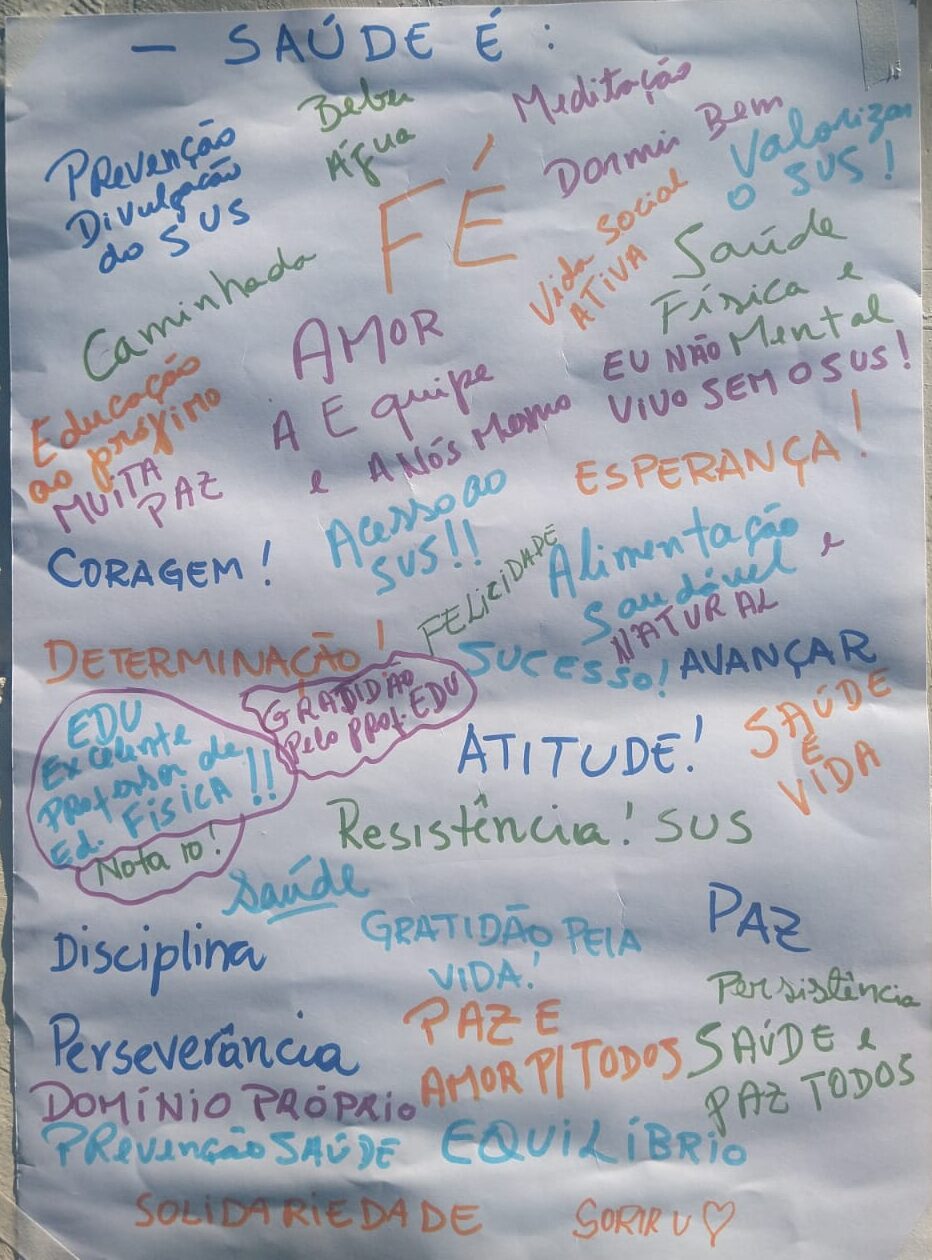 - SAÚDE É:
Beber
Água
Meditação
Dormir Bem
Valorizar
O SUS!
Prevenção
Divulgação
do SUS
FÉ
Vida Social
ATIVA
Saúde
Física e
Mental
Caminhada
AMOR
A Equipe
e A Nós Mesmo
EU NÃO
VIVO SEM O SUS!
Educação
ao próximo
MUITA
PAZ
ESPERANÇA!
Acesso ao
SUS!!
CORAGEM!
FELICIDADE
Alimentação
Saudável e
NATURAL
DETERMINAÇÃO!
SUCESSO!
AVANÇAR
GRADIDÃO
Pelo PROF. EDU
EDU
Excelente
Professor de
Ed. FÍSICA!!
Nota 10!
ATITUDE!
SAÚDE
É
VIDA
Resistência! SUS
Saúde
Disciplina
GRATIDÃO PELA
VIDA!
PAZ
Persistência
Perseverância
PAZ E
AMOR P/ TODOS
SAÚDE e
PAZ TODOS
DOMÍNIO PRÓPRIO
PREvenção SAÚDE
EQUILÍBRIO
SOLIDARIEDADE
SORIR U ♡